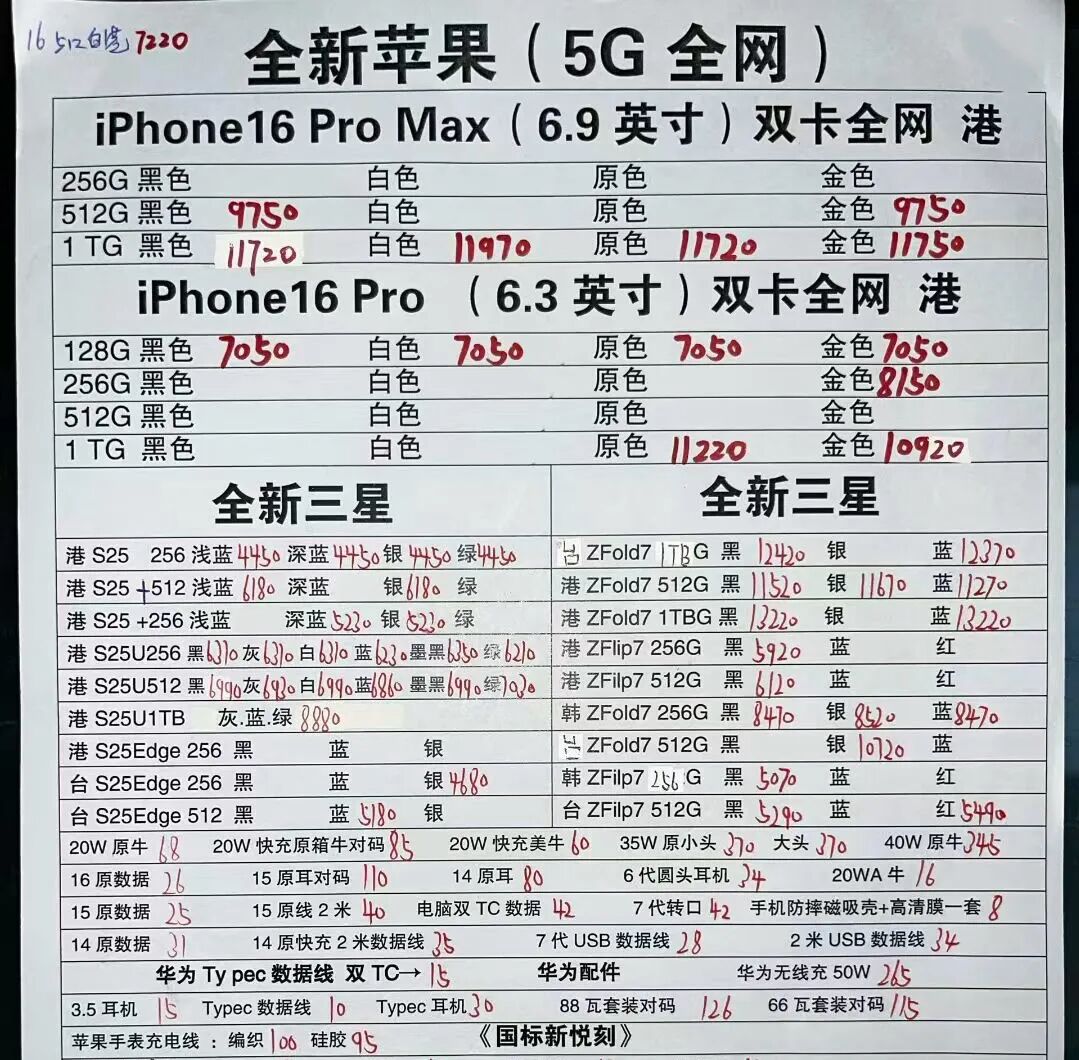 16 512白壳 7220
全新苹果（5G 全网）
iPhone16 Pro Max（6.9 英寸）双卡全网 港
256G 黑色 白色 原色 金色
512G 黑色 9750 白色 原色 金色 9750
1 TG 黑色 11720 白色 11970 原色 11720 金色 11750
iPhone16 Pro （6.3 英寸）双卡全网 港
128G 黑色 7050 白色 7050 原色 7050 金色 7050
256G 黑色 白色 原色 金色 8150
512G 黑色 白色 原色 金色
1 TG 黑色 白色 原色 11220 金色 10920
全新三星
港 S25 256 浅蓝 4450 深蓝 4450 银 4450 绿 4450
港 S25 +512 浅蓝 6180 深蓝 银 6180 绿
港 S25 +256 浅蓝 深蓝 5230 银 5230 绿
港 S25U256 黑 6310 灰 6310 白 6310 蓝 6230 墨黑 6350 绿 6210
港 S25U512 黑 6990 灰 6930 白 6990 蓝 6860 墨黑 6990 绿 7030
港 S25U1TB 灰.蓝.绿 8880
港 S25Edge 256 黑 蓝 银
台 S25Edge 256 黑 蓝 银 4680
台 S25Edge 512 黑 蓝 5180 银
全新三星
台 ZFold7 1TBG 黑 12420 银 蓝 12370
港 ZFold7 512G 黑 11520 银 11670 蓝 11270
港 ZFold7 1TBG 黑 13220 银 蓝 13220
港 ZFlip7 256G 黑 5920 蓝 红
港 ZFilp7 512G 黑 6120 蓝 红
韩 ZFold7 256G 黑 8470 银 8520 蓝 8470
台 ZFold7 512G 黑 银 10720 蓝
韩 ZFilp7 256 G 黑 5070 蓝 红
台 ZFilp7 512G 黑 5290 蓝 红 5490
20W 原牛 68 20W 快充原箱牛对码 85 20W 快充美牛 60 35W 原小头 370 大头 370 40W 原牛 345
16 原数据 26 15 原耳对码 110 14 原耳 80 6 代圆头耳机 34 20WA 牛 16
15 原数据 25 15 原线 2 米 40 电脑双 TC 数据 42 7 代转口 42 手机防摔磁吸壳+高清膜一套 8
14 原数据 31 14 原快充 2 米数据线 35 7 代 USB 数据线 28 2 米 USB 数据线 34
华为 Ty pec 数据线 双 TC→ 15 华为配件 华为无线充 50W 265
3.5 耳机 15 Typec 数据线 10 Typec 耳机 30 88 瓦套装对码 126 66 瓦套装对码 115
苹果手表充电线：编织 100 硅胶 95 《国标新悦刻》